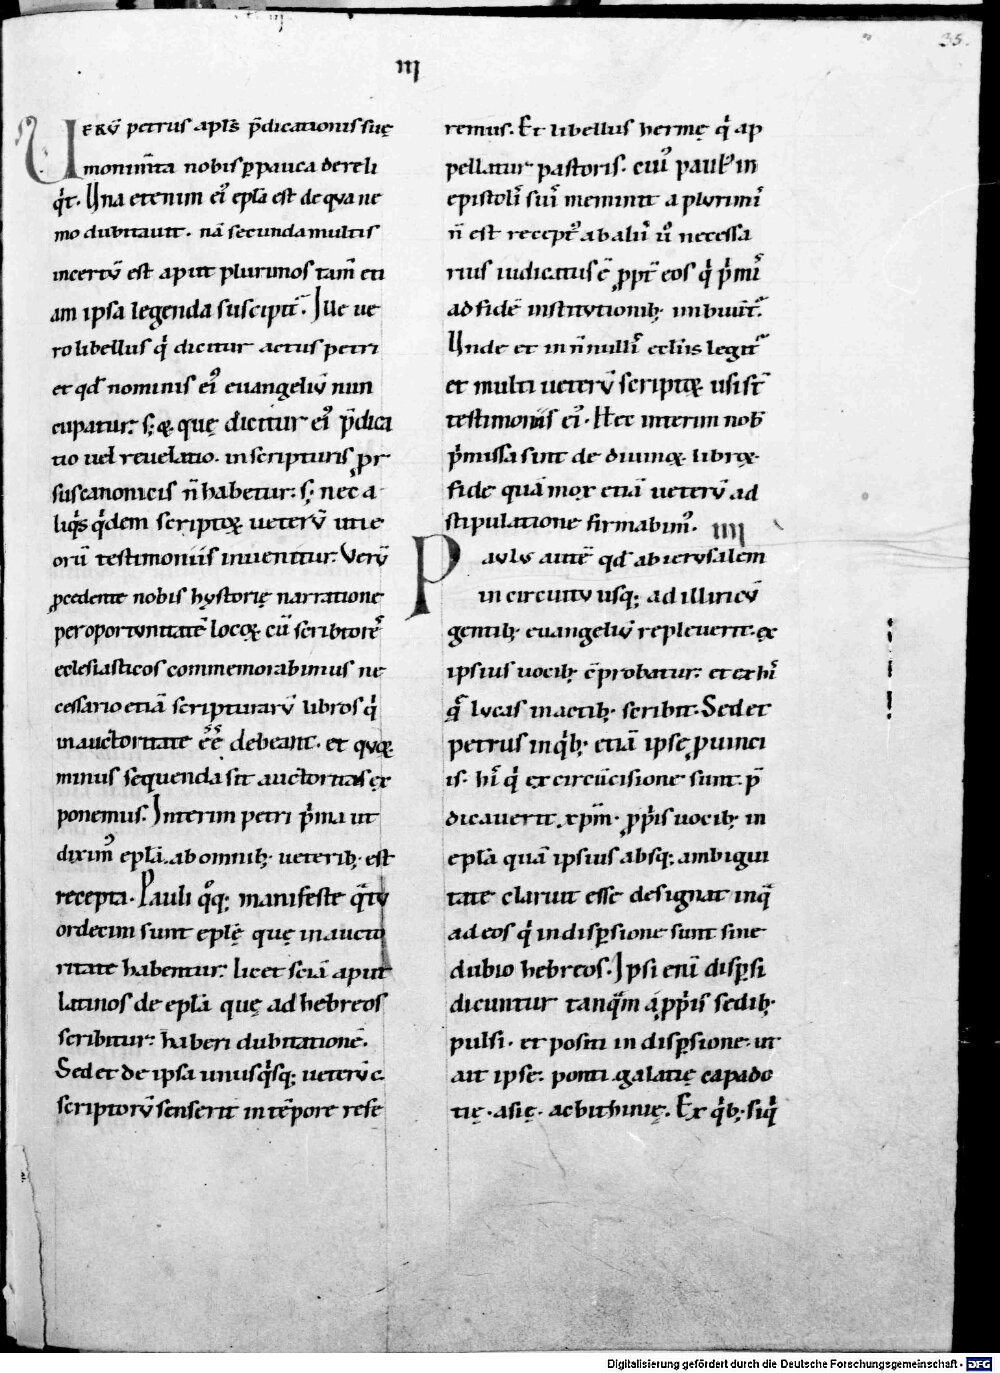 35.
III
UERṼ petrus apls̄ p̄dicationis suę
monim̄ta nobis ꝑpauca dereli
qͥt. Una etenim eiꝰ epl̄a est de qua ne
mo dubitauit. nā secunda multis
incertū est aput plurimos tam̄ eti
am ipsa legenda suscipit᷑. Ille ue
ro libellus qͥ dicitur actus petri
et qd̄ nominis eiꝰ euangeliū nun
cupatur: s; ⁊ quę dicitur eiꝰ p̄dica
tio uel reuelatio. in scripturis ꝓr
sus canonicis n̄ habetur: s; nec a
liqͥs qͥdem scriptoꝝ ueterū uti e
orū testimoniis inuenitur. Verū
ꝓcedente nobis hystorię narratione
per oportunitatē locoꝝ cū scribtorēs
eclesiasticos commemorabimus ne
cessario etiā scripturarū libros qͥ
in auctoritate ēē debeant. et quoꝝ
minus sequenda sit auctoritas ex
ponemus. Interim petri pͥma ut
diximꝰ epl̄a. ab omnibꝫ ueteribꝫ est
recepta. Pauli qͦqꝫ manifeste qͣtu
ordecim sunt eplę̄ quę in aucto
ritate habentur: licet sciā aput
latinos de epl̄a quę ad hebreos
scribitur: haberi dubitationē.
Sed et de ipsa unusqͥsqꝫ ueterū
scriptorū senserit in tēpore rese
remus. Et libellus hermę qͥ ap
pellatur pastoris. cuiꝰ paulꝰ in
epistolis suis meminit a plurimis
n̄ est receptꝰ ab aliis ū necessa
rius iudicatus ē ꝓpt̄ eos qͥ pͥmis
ad fidē institutionibꝫ imbuunt᷑.
Unde et in n̄nullis eccliis legit᷑
et multi ueterū scriptoꝝ usi st̄
testimoniis eiꝰ. Hęc interim nob̄
p̄missa sint de diuinoꝝ libroꝝ
fide quā mox etiā ueterū ad
stipulatione firmabimꝰ. IIII
PAULUS autē qd̄ ab ierusalem
in circuitu usqꝫ ad illiricū
gentibꝫ euangeliū repleuerit. ex
ipsius uocibꝫ cōprobatur: et ex his
quę lucas in actibꝫ scribit. Sed et
petrus in qͥbꝫ etiā ipse ꝓuinci
is. his qͥ ex circūcisione sunt p̄
dicauerit xpm̄. ꝓpͥis uocibꝫ in
epl̄a quā ipsius absqꝫ ambigui
tate claruit esse designat in qͣ
ad eos qͥ in disꝑsione sunt sine
dubio hebreos. Ipsi enī disꝑsi
dicuntur tanqͣm a ꝓpͥis sedibꝫ
pulsi. et positi in disꝑsione. ut
ait ipse. ponti. galatię capado
tię. asię. ac bithinię. Ex qͥbꝫ siqͥ
Digitalisierung gefördert durch die Deutsche Forschungsgemeinschaft - DFG